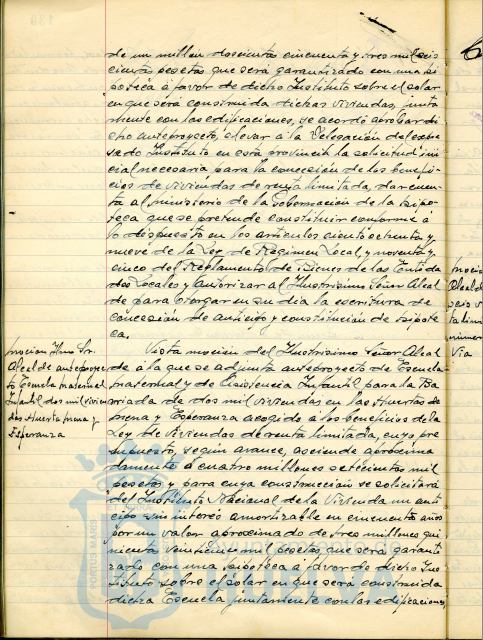 de un millon doscientas cincuenta y tres mil seis
cientas pesetas que será garantizado con una hi
poteca á favor de dicho Instituto sobre el solar
en que será construida dichas viviendas junta
mente con las edificaciones, se acordó aprobar di
cho anteproyecto, elevar á la Delegación del expre
sado Instituto en esta provincia la solicitud ini
cial necesaria para la concesión de los benefi
cios de viviendas de renta limitada, dar cuen
ta al Ministerio de la Gobernación de la hipo
teca que se pretende constituir conforme á
lo dispuesto en los articulos ciento ochenta y
nueve de la Ley de Regimen Local, y noventa y
cinco del Reglamento de Bienes de las Entida
des Locales y autorizar al Ilustrisimo Señor Alcal
de para otorgar en su dia la escritura de
concesión de anticipo y constitución de hipote
ca.
Mocion Ilmo Sr.
Alcalde anteproyec
to Escuela Maternal
Infantil dos mil vivien
das Huerta Mena y
Esperanza
Vista moción del Ilustrisimo Señor Alcal
de á la que se adjunta anteproyecto de Escuela
Maternal y de Asistencia Infantil para la Ba
rriada de dos mil viviendas en las Huertas de
Mena y Esperanza acogido á los beneficios de la
Ley de Viviendas de renta limitada, cuyo pre
supuesto, según avance, asciende aproxima
damente á cuatro millones setecientas mil
pesetas y para cuya construcción se solicitará
del Instituto Nacional de la Vivienda un anti
cipo sin interés amortizable en cincuenta años
por un valor aproximado de tres millones qui
nientas veinticinco mil pesetas, que será garanti
zado con una hipoteca á favor de dicho Ins
tituto sobre el solar en que será construida
dicha Escuela juntamente con las edificaciones,
Via
PORTUS MARIS